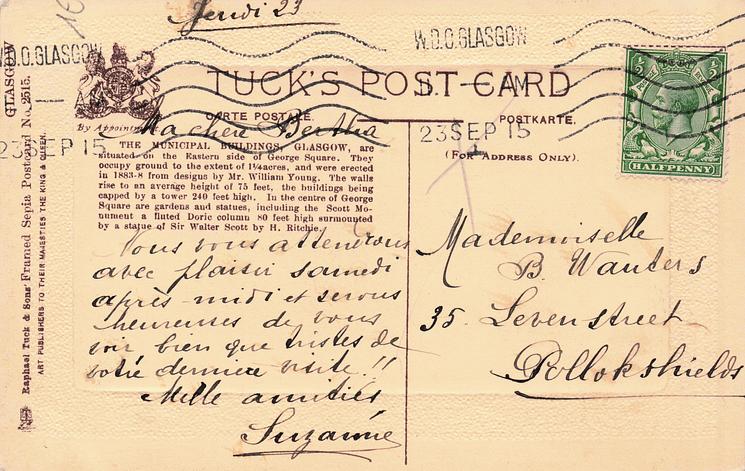 Jeudi 23
W.D.O. GLASGOW
W.D.O. GLASGOW
AM
AM
23 SEP 15
23 SEP 15
TUCK'S POST CARD
CARTE POSTALE.
POSTKARTE.
(FOR ADDRESS ONLY).
By Appointment
HALFPENNY
GLASGOW
Raphael Tuck & Sons' Framed Sepia Postcard No. 2515.
ART PUBLISHERS TO THEIR MAJESTIES THE KING & QUEEN.
Ma chère Bertha
THE MUNICIPAL BUILDINGS, GLASGOW, are
situated on the Eastern side of George Square. They
occupy ground to the extent of 1¼acres, and were erected
in 1883-8 from designs by Mr. William Young. The walls
rise to an average height of 75 feet, the buildings being
capped by a tower 240 feet high. In the centre of George
Square are gardens and statues, including the Scott Mo-
nument a fluted Doric column 80 feet high surmounted
by a statue of Sir Walter Scott by H. Ritchie.
Nous vous attendrons
avec plaisir samedi
après-midi et serons
heureuses de vous
voir bien que tristes de
votre dernière visite!!
Mille amitiés
Suzanne
Mademoiselle
B. Wauters
35. Levenstreet
Pollokshields